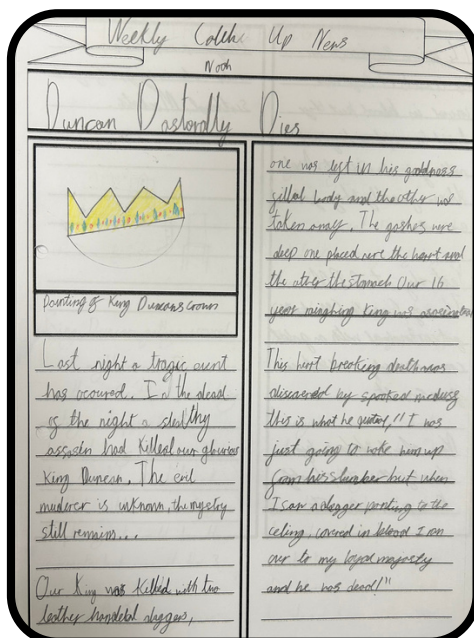 Weekly Catch Up News
Noah
Duncan Dastardly Dies
Painting of King Duncans crown
Last night a tragic event
has ocoured. In the dead
of the night a stealthy
assasin had Killed our glourious
King Duncan. The evil
muderer is unknown, the mystry
still remains...
Our King was Killed with two
leather handeld daggers,
one was left in his goddness
gilled body and the other was
taken away. The gashes were
deep one placed nere the heart and
the other the stomach Our 16
year reighing King was assasinated
This hert breaking death was
discovered by spooked
this is what he "I was
just going to wake him up
from his slumber but when
I saw a dagger ponting to the
celing, covered in blood I ran
over to my loyal majesty
and he was dead!"